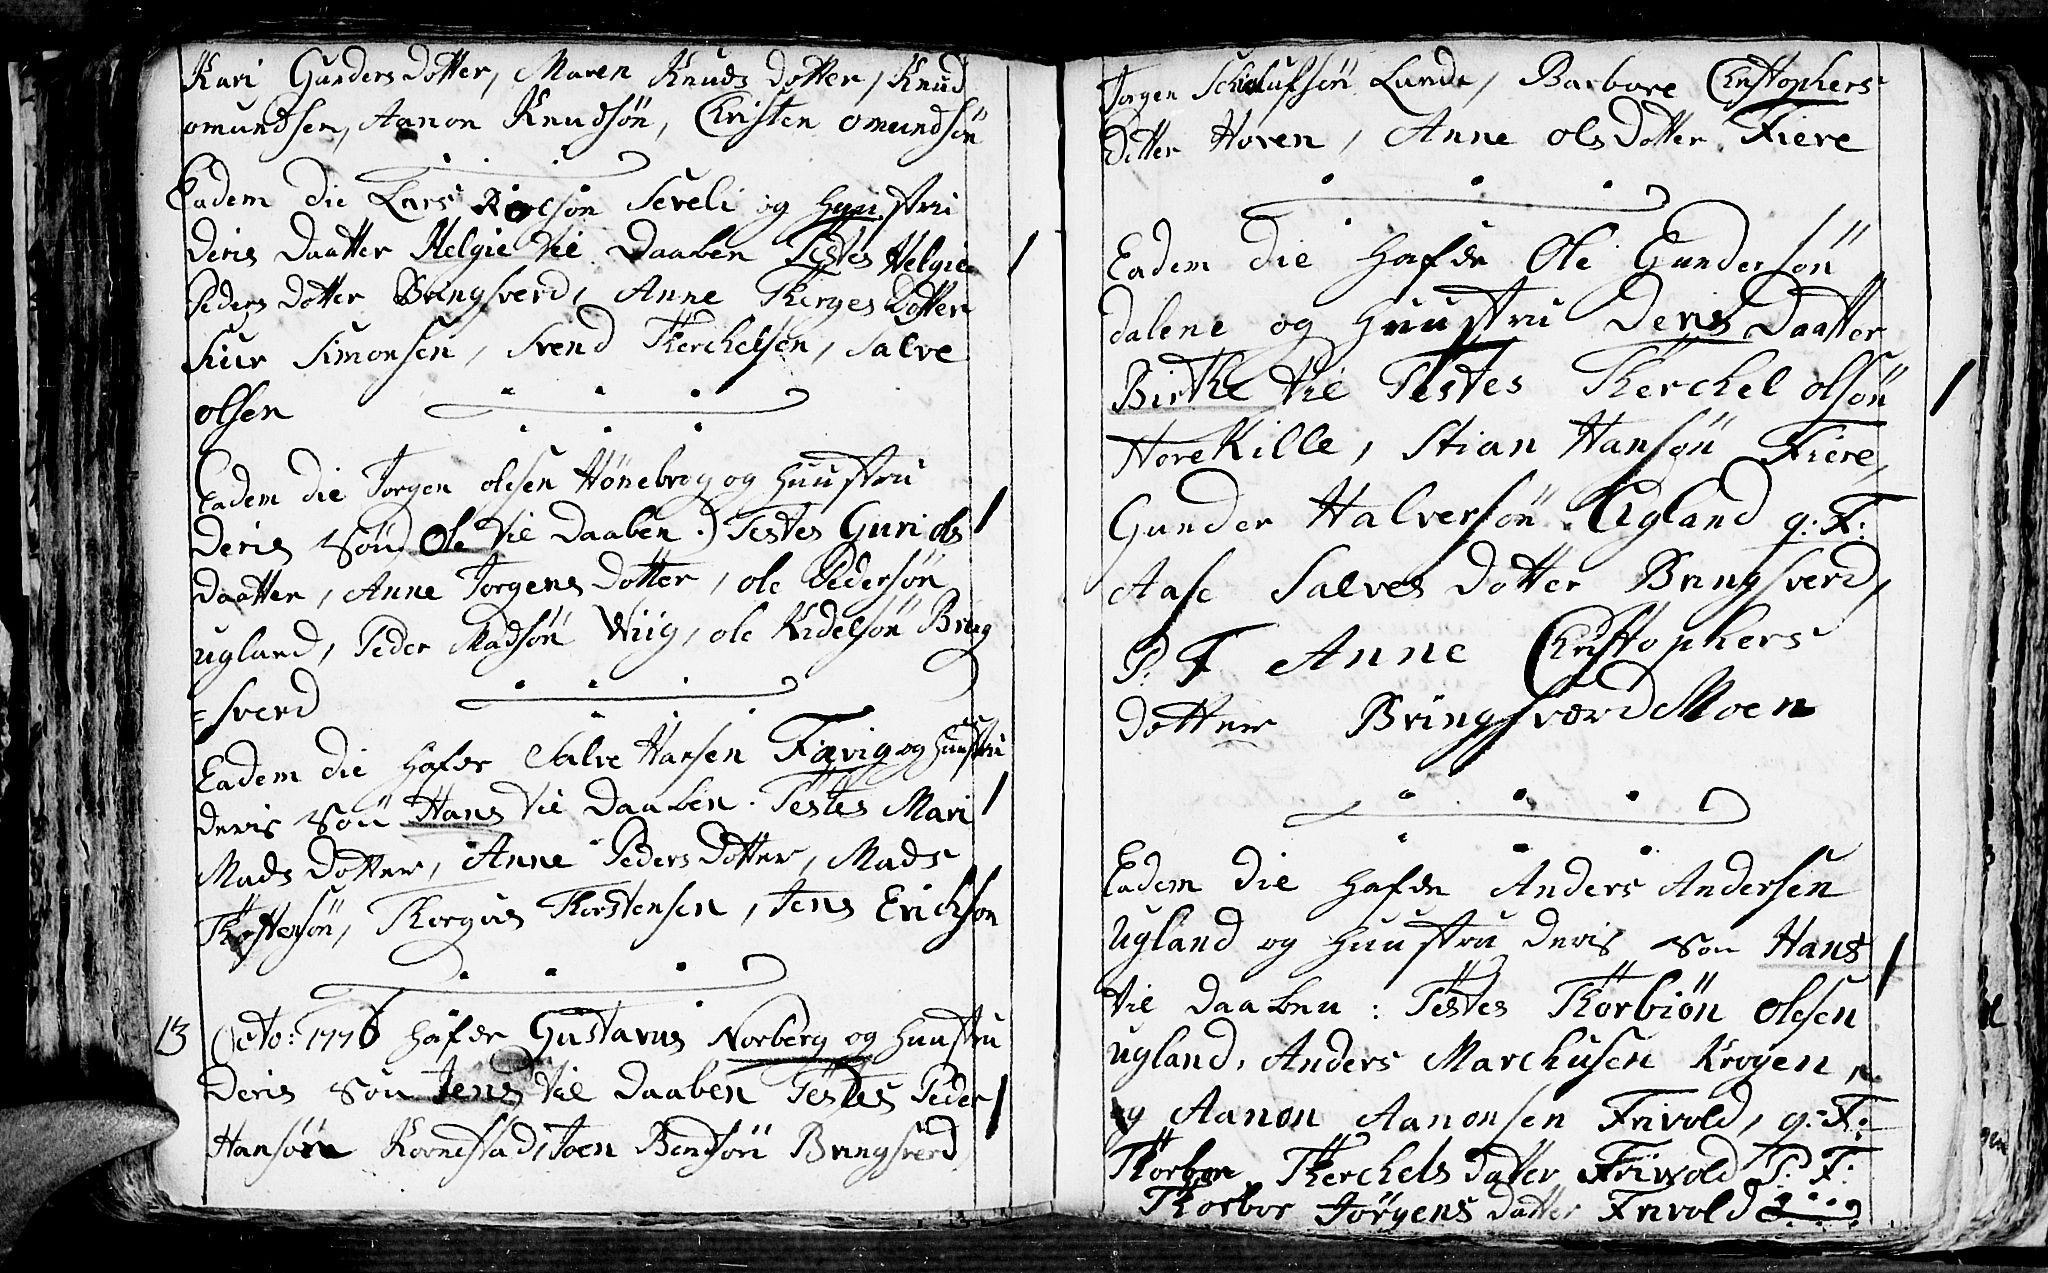 Kari Gunders Dotter, Maren Knuds Dotter, Knud
omundsen, Aanon Knudsøn, Christen omundsøn
Eadem die Lars Roelsøn Seveli og Huustru
Deris Daatter Helgie til Daaben Testes Helgie
Peders Dotter Bringsverd, Anne Therges Dotter
Siur Simonsen, Svend Therchelsen, Salve
olsen
Eadem die Jørgen olesen Hönebrog og Huustru
Deris Søn Ole til Daaben) Testes Guri ols
Daatter, Anne Jørgens Dotter, ole Pedersøn
ugland, Peder Madsøn Wiig, ole Kidelsøn Bring
=sverd
Eadem die Hafde Salve Hansen Fævig og Huustru
Deris Søn Hans til Daaben. Testes Mari
Mads Dotter, Anne Peders Dotter, Mads
Thostensøn, Thorgius Thorstensen, Jens Erichson
13 Octo: 1776 Hafde Gustavus Norberg og Huustru
Deris Søn Jens til Daaben Testes Peder
Hansøn Roonestad, Joen Bendsøn Bringsverd
Jørgen Lunde, Barbore Christophers
Dotter Hoven, Anne Ols Dotter Fiere
Eadem die Hafde Ole Gundersøn
dalene og Huustru Deris Daatter
Birthe til Testes Therchel olsøn
Horekille, Stian Hansøn Fiere,
Gunder Halversøn Ugland q: F:
Aase Salves Dotter Bringsverd,
P. F Anne Christophers
Dotter Bringsværd Moen
Eadem die Hafde Anders Andersen
Ugland og Huustru Deris Søn Hans
til Daaben: Testes Thorbiøn Olesen
ugland, Anders Marchusen Krogen,
og Aanon Aanonsen Frivold, q: F:
Thorbor Therchels Datter Friwold P: F:
Thorbor Jørgens Datter Frivold